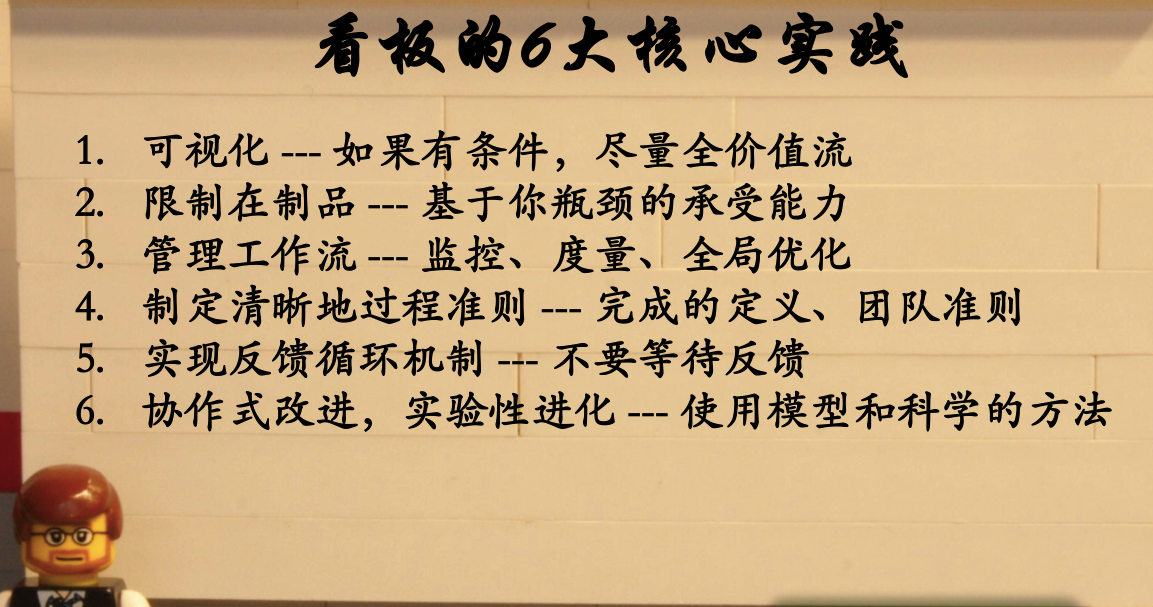 看板的6大核心实践
1. 可视化 --- 如果有条件，尽量全价值流
2. 限制在制品 --- 基于你瓶颈的承受能力
3. 管理工作流 --- 监控、度量、全局优化
4. 制定清晰地过程准则 --- 完成的定义、团队准则
5. 实现反馈循环机制 --- 不要等待反馈
6. 协作式改进，实验性进化 --- 使用模型和科学的方法